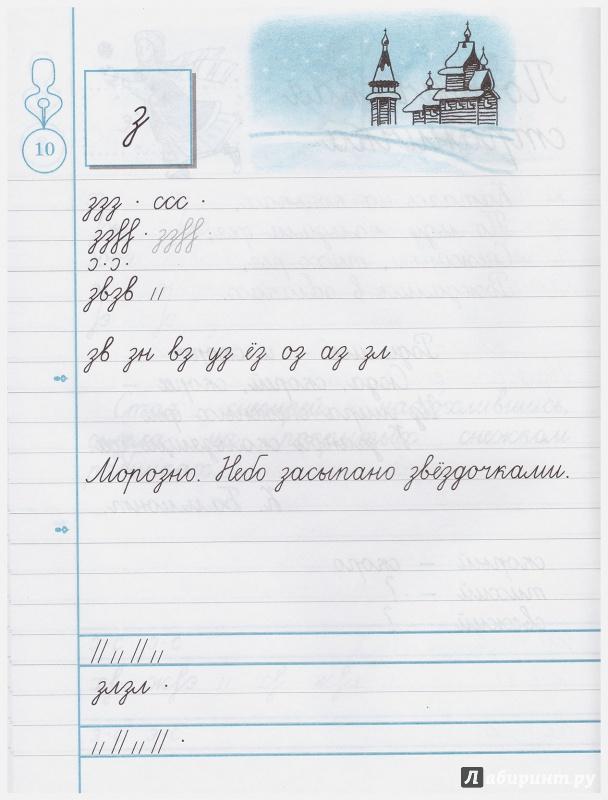 10
з
ззз · ссс ·
ззff · ззff
ɔ · ɔ ·
звзв
зв зн вз уз ёз оз аз зл
Морозно. Небо засыпано звёздочками.
злзл ·
Лабиринт.ру